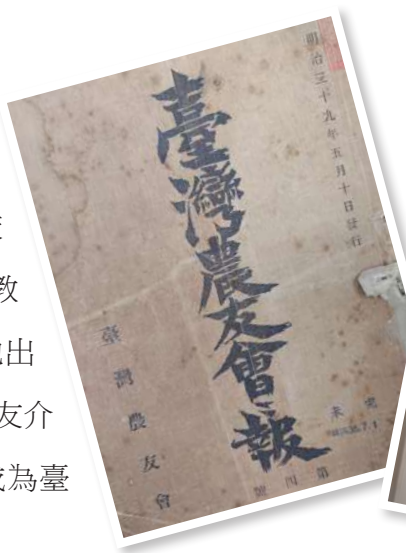 明治三十九年五月十日發行
臺灣農友會報
臺灣農友會
第四號
教
出
友介
為臺